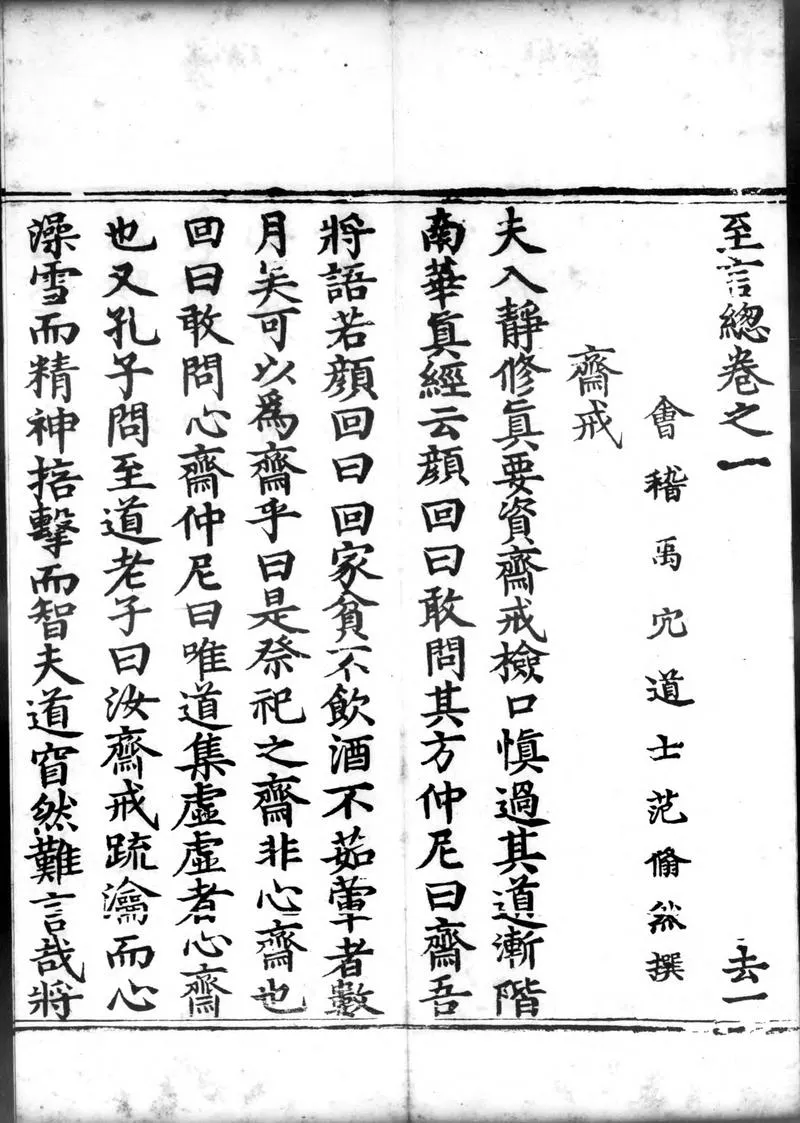 至言總卷之一　去一
會稽禹穴道士范翛然撰
齋戒
夫入靜修眞要資齋戒檢口愼過其道漸階
南華眞經云顏回曰敢問其方仲尼曰齋吾
將語若顏回曰回家貧不飮酒不茹葷者數
月矣可以爲齋乎曰是祭祀之齋非心齋也
回曰敢問心齋仲尼曰唯道集虛虛者心齋
也又孔子問至道老子曰汝齋戒疏瀹而心
澡雪而精神掊擊而智夫道窅然難言哉將